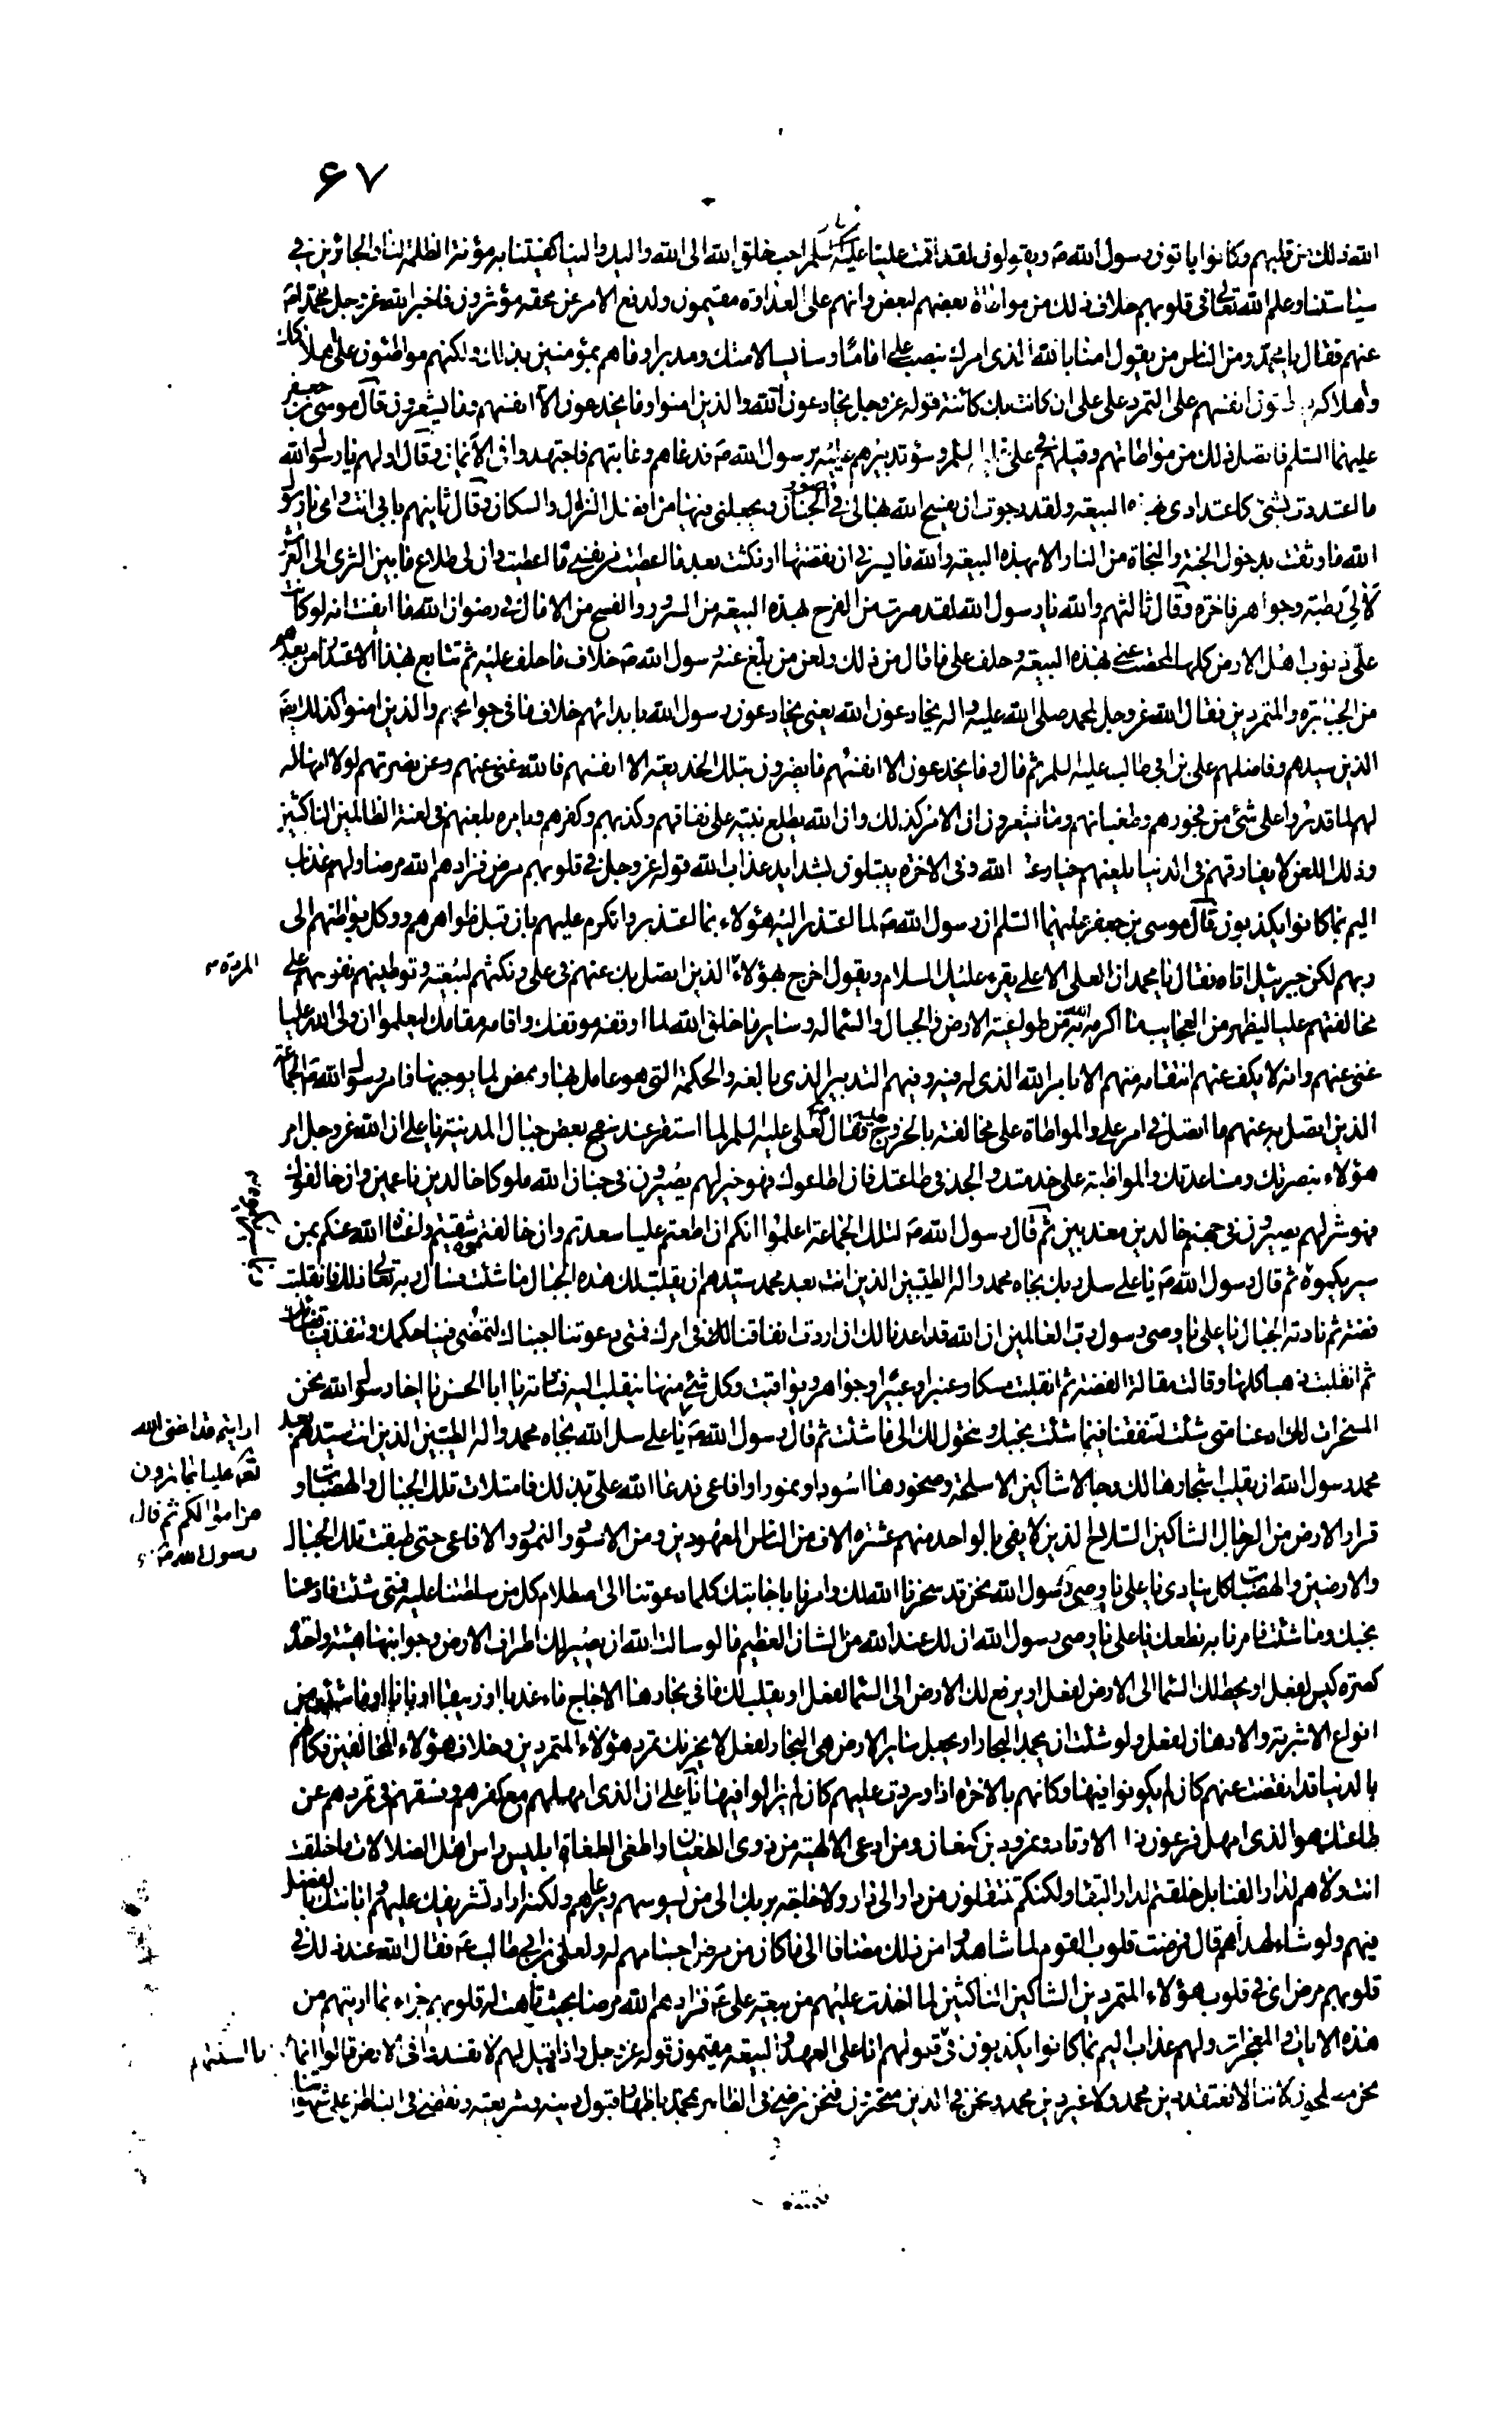 ۶۷
الله ذلك من قلبهم وكانوا ياتون رسول الله ص ويقولون لقد اقمت علينا احب خلق الله الى الله واليك والينا كفيتنا به مؤنة الظلمة لنا والجائرين في
سياستنا وعلم الله تعالى في قلوبهم خلاف ذلك من مواطاة بعضهم لبعض وانهم على العداوة مقيمون ولدفع الامر عن محقه مؤثرون فاخبر الله عز وجل محمدا ص
عنهم فقال يا محمد ومن الناس من يقول امنا بالله الذي امرك بنصب علي اماما وسائسا لامتك ومدبرا وما هم بمؤمنين بذلك ولكنهم مواطئون على هلاكك
واهلاكه يوطنون انفسهم على التمرد على علي ان كانت بك كائنة قوله عز وجل يخادعون الله والذين امنوا وما يخدعون الا انفسهم وما يشعرون قال موسى بن جعفر
عليهما السلم فاتصل ذلك من مواطاتهم وقيلهم في علي عليه السلم وسوء تدبيرهم عليه برسول الله ص فدعاهم وعاتبهم فاجتهدوا في الايمان وقال اولهم يا رسول الله
ما اعتددت بشئ كاعتدادي بهذه البيعة ولقد رجوت ان يفسح الله بها لي في قصور الجنان ويجعلني فيها من افضل النزال والسكان وقال ثانيهم بابي انت وامي يا رسول
الله ما وثقت بدخول الجنة والنجاة من النار الا بهذه البيعة والله ما يسرني ان نقضتها او نكثت بعد ما اعطيت من نفسي ما اعطيت وان لي طلاع ما بين الثرى الى العرش
لالي رطبة وجواهر فاخرة وقال ثالثهم والله يا رسول الله لقد صرت من الفرح بهذه البيعة من السرور والفسح من الامال في رضوان الله ما ايقنت انه لو كانت
علي ذنوب اهل الارض كلها لمحصت عني بهذه البيعة وحلف على ما قال من ذلك ولعن من بلغ عنه رسول الله ص خلاف ما حلف عليه ثم تتابع بهذا الاعتذار من بعدهم
من الجبابرة والمتمردين فقال الله عز وجل لمحمد صلى الله عليه واله يخادعون الله يعني يخادعون رسول الله بابدائهم خلاف ما في جوانحهم والذين امنوا كذلك ايضا
الذين سيدهم وفاضلهم علي بن ابي طالب عليه السلم ثم قال وما يخدعون الا انفسهم ما يضرون بتلك الخديعة الا انفسهم فالله غني عنهم وعن نصرتهم لولا امهاله
لهم لما قدروا على شئ من فجورهم وطغيانهم وما يشعرون ان الامر كذلك وان الله يطلع نبيه على نفاقهم وكذبهم وكفرهم ويامره بلعنهم في لعنة الظالمين الناكثين
وذلك اللعن لا يفارقهم في الدنيا يلعنهم خيار عباد الله وفي الاخرة يبتلون بشدايد عذاب الله قوله عز وجل في قلوبهم مرض فزادهم الله مرضا ولهم عذاب
اليم بما كانوا يكذبون قال موسى بن جعفر عليهما السلم ان رسول الله ص لما اعتذر اليه هؤلاء بما اعتذروا تكرم عليهم بان قبل ظواهرهم ووكل بواطنهم الى
ربهم لكن جبرئيل اتاه فقال يا محمد ان العلي الاعلى يقرء عليك السلام ويقول اخرج بهؤلاء المردة الذين اتصل بك عنهم في علي ونكثهم لبيعته وتوطينهم نفوسهم على
مخالفتهم عليا ليظهر من العجايب ما اكرمه الله به من طواعية الارض والجبال والسماء له وساير ما خلق الله لما اوقفه موقفك واقامه مقامك ليعلموا ان ولي الله عليا
غني عنهم وانه لا يكف عنهم انتقامه منهم الا بامر الله الذي له فيه وفيهم التدبير الذي بالغه والحكمة التي هو عامل بها وممض لما يوجبها فامر رسول الله ص الجماعة
الذين اتصل به عنهم ما اتصل في امر علي والمواطاة على مخالفته بالخروج فقال لعلي عليه السلم لما استقر عند سفح بعض جبال المدينة يا علي ان الله عز وجل امر
هؤلاء بنصرتك ومساعدتك والمواظبة على خدمتك والجد في طاعتك فان اطاعوك فهو خير لهم يصيرون في جنان الله ملوكا خالدين ناعمين وان خالفوك
فهو شر لهم يصيرون في جهنم خالدين معذبين ثم قال رسول الله ص لتلك الجماعة اعلموا انكم ان اطعتم عليا سعدتم وان خالفتموه شقيتم واغناه الله عنكم بمن
سيريكموه ثم قال رسول الله ص يا علي سل ربك بجاه محمد واله الطيبين الذين انت بعد محمد سيدهم ان يقلب لك هذه الجبال ما شئت فسال ربه تعالى ذلك فانقلبت
فضة ثم نادته الجبال يا علي يا وصي رسول رب العالمين ان الله قد اعدنا لك ان اردت انفاقنا في امرك فمتى دعوتنا اجبناك لتمضي فينا حكمك وتنفذ فينا قضاءك
ثم انقلبت ذهبا كلها وقالت مقالة الفضة ثم انقلبت مسكا وعنبرا وعبيرا وجواهر ويواقيت وكل شئ منها ينقلب اليه فنادته يا ابا الحسن يا اخا رسول الله نحن
المسخرات لك ادعنا متى شئت لتنفقنا فيما شئت نجبك ونتحول لك الى ما شئت ثم قال رسول الله ص يا علي سل الله بجاه محمد واله الطيبين الذين انت سيدهم بعد
ارايتم قد اغنى الله
عليا بما ترون
عن اموالكم ثم قال
رسول الله ص
محمد رسول الله ان يقلب اشجارها لك رجالا شاكين الاسلحة وصخورها اسودا ونمورا وافاعي فدعا الله علي بذلك فامتلات تلك الجبال والهضبات و
قرار الارض من الرجال الشاكين السلاح الذين لا يفي بالواحد منهم عشرة الاف من الناس المعهودين ومن الاسود والنمور والافاعي حتى طبقت تلك الجبال
والارضين والهضبات كل ينادي يا علي يا وصي رسول الله نحن قد سخرنا الله لك وامرنا باجابتك كلما دعوتنا الى اصطلام كل من سلطتنا عليه فمتى شئت فادعنا
نجبك وما شئت فامرنا به نطعك يا علي يا وصي رسول الله ان لك عند الله من الشان العظيم ما لو سالت الله ان يصير لك اطراف الارض وجوانبها هيئة واحدة
كصرة كيس لفعل او يحط لك السماء الى الارض لفعل او يرفع لك الارض الى السماء لفعل او يقلب لك ما في بحارها الاجاج ماء عذبا او زيبقا او بانا او ما شئت من
انواع الاشربة والادهان لفعل ولو شئت ان يجمد البحار او يجعل ساير الارض هي البحار لفعل لا يحزنك تمرد هؤلاء المتمردين وخلاف هؤلاء المخالفين فكانهم
بالدنيا قد انقضت عنهم كان لم يكونوا فيها وكانهم بالاخرة اذا وردت عليهم كان لم يزالوا فيها يا علي ان الذي امهلهم مع كفرهم وفسقهم في تمردهم عن
طاعتك هو الذي امهل فرعون ذا الاوتاد ونمرود بن كنعان ومن ادعى الالهية من ذوي الطغيان واطغى الطغاة ابليس راس اهل الضلالات ما خلقت
انت ولا هم لدار الفنا بل خلقتم لدار البقاء ولكنكم تنتقلون من دار الى دار ولا حاجة بربك الى من يسوسهم ويرعاهم ولكنه اراد تشريفك عليهم وابانتك بالفضل
فيهم ولو شاء لهداهم قال فمرضت قلوب القوم لما شاهدوا من ذلك مضافا الى ما كان من مرض اجسامهم له ولعلي بن ابي طالب ع فقال الله عند ذلك في
قلوبهم مرض اي في قلوب هؤلاء المتمردين الشاكين الناكثين لما اخذت عليهم من بيعة علي ع فزادهم الله مرضا بحيث تاهت له قلوبهم جزاء بما اريتهم من
هذه الايات والمعجزات ولهم عذاب اليم بما كانوا يكذبون في قولهم انا على العهد والبيعة مقيمون قوله عز وجل واذا قيل لهم لا تفسدوا في الارض قالوا انما
نحن مصلحون لاننا لا نعتقد دين محمد ولا غير دين محمد ونحن في الدين متحيرون فنحن نرضى في الظاهر محمدا باظهار قبول دينه وشريعته ونفضي في الباطن على شهواتنا